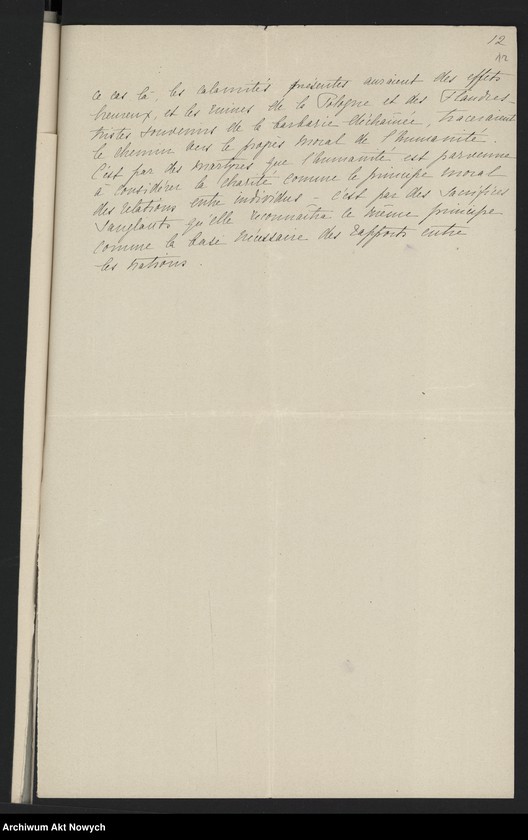 12
12
ce cas là, les calamités présentes auraient des effets
heureux, et les ruines de la Pologne et des Flandres –
tristes souvenirs de la barbarie déchaînée, traceraient
le chemin vers le progrès moral de l'humanité.
C'est par des martyres que l'humanité est parvenue
à considérer la charité comme le principe moral
des relations entre individus – c'est par des sacrifices
sanglants qu'elle reconnaîtra le même principe
comme la base nécessaire des rapports entre
les nations.
Archiwum Akt Nowych